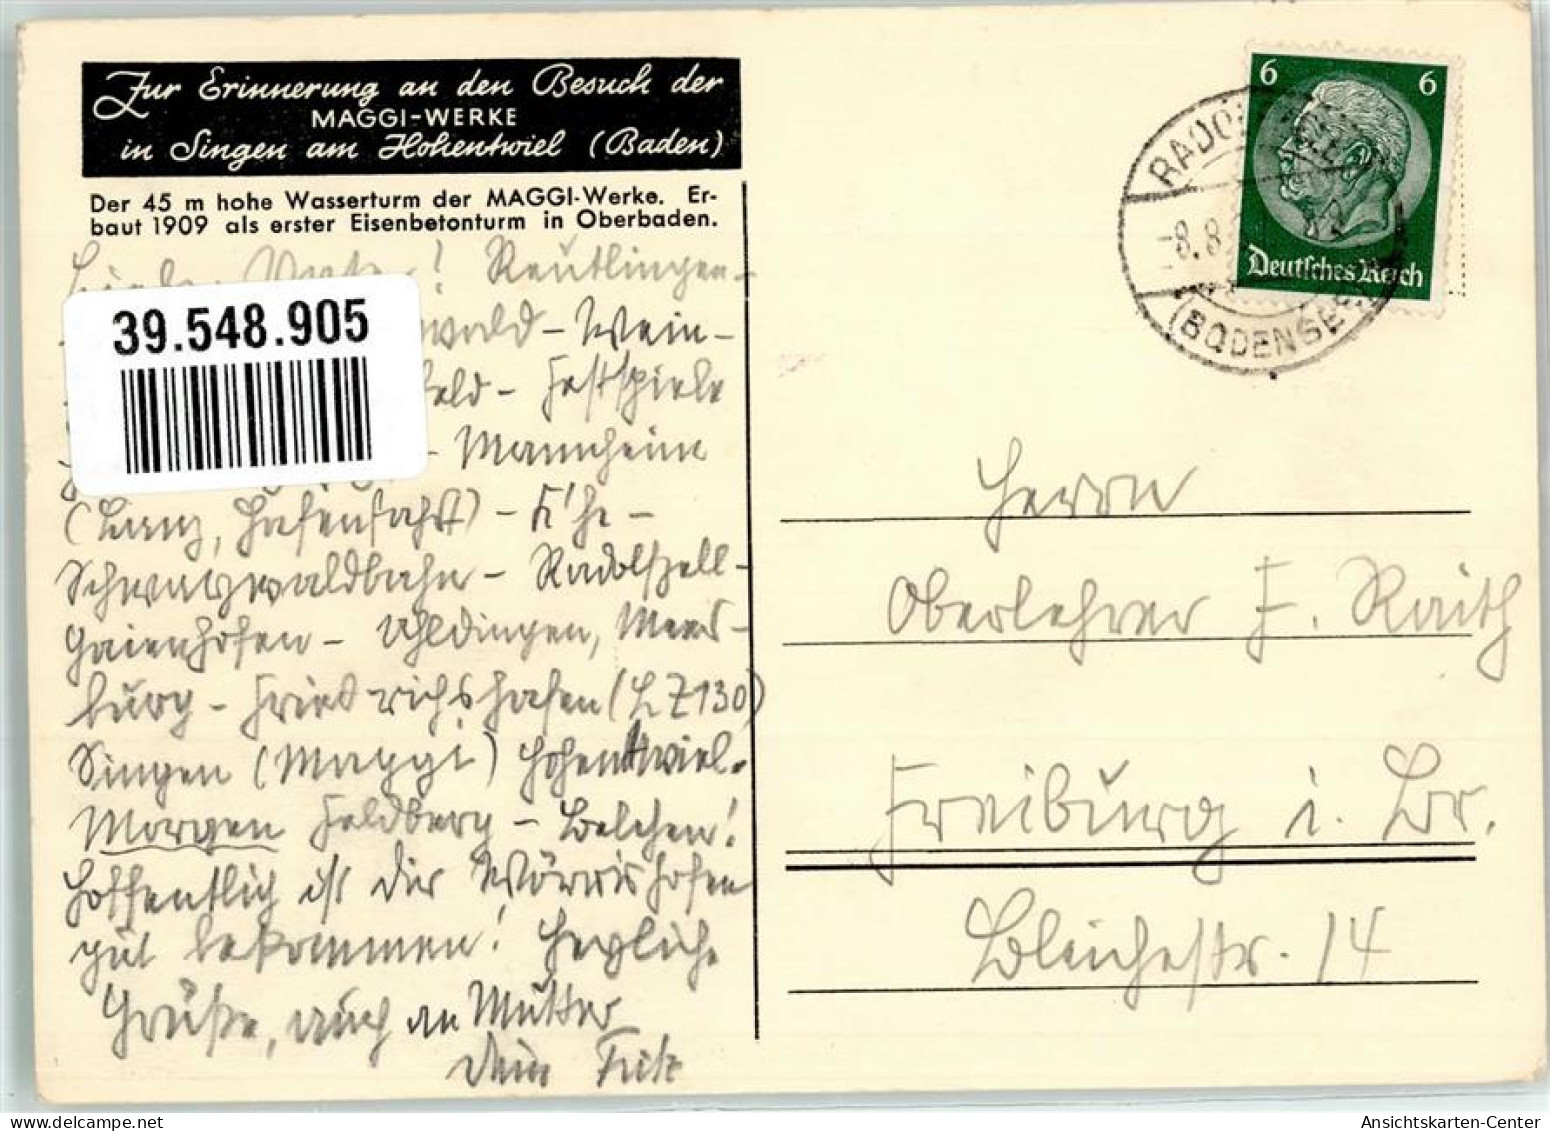 Zur Erinnerung an den Besuch der
MAGGI-WERKE
in Singen am Hohentwiel (Baden)
Der 45 m hohe Wasserturm der MAGGI-Werke. Er-
baut 1909 als erster Eisenbetonturm in Oberbaden.
! Reutlingen-
39.548.905
wald - Wein-
feld - Festspiele
- Mannheim
(Lanz, Hafenfahrt) - K'he -
Schwarzwaldbahn - Radolfzell -
Gaienhofen - Uhldingen, Meers-
burg - Friedrichshafen (LZ130)
Singen (Maggi) Hohentwiel.
Morgen Feldberg - Belchen!
Hoffentlich ist dir Wörrishofen
gut bekommen! Herzliche
Grüße, auch an Mutter
Dein Fritz
6 6
Deutsches Reich
RADOLFZELL
-8.8.
(BODENSEE)
Herrn
Oberlehrer F. Raith
Freiburg i. Br.
Bleichestr. 14
Ansichtskarten-Center